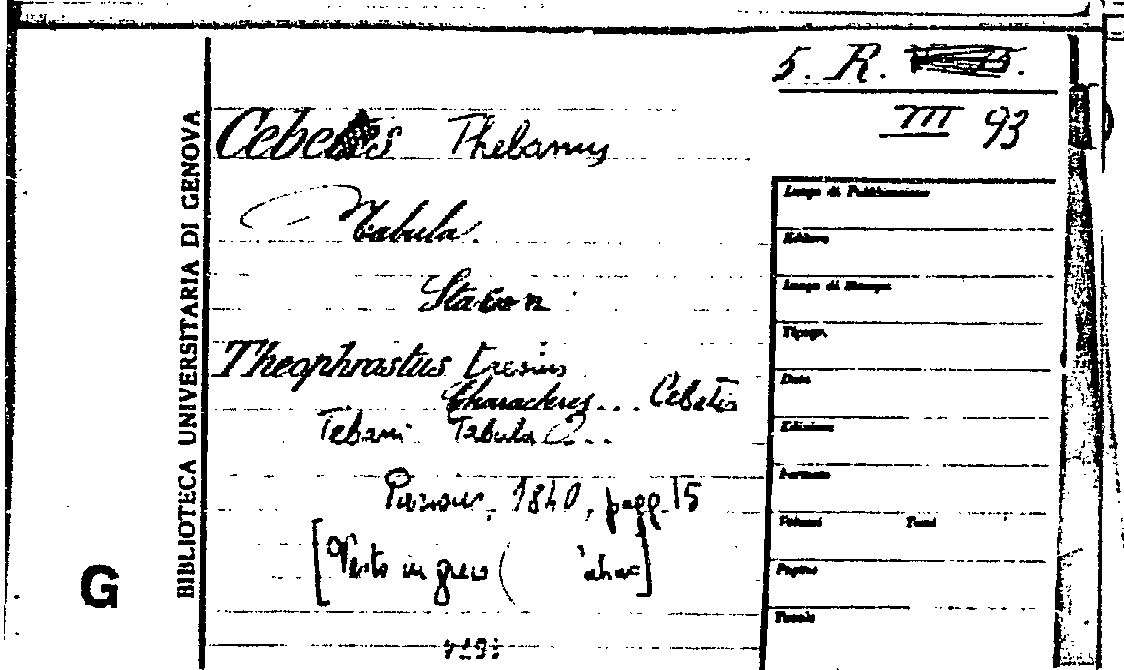 5. R.
III 93
Cebes Thebanus
Tabula.
Sta in
Theophrastus Eresius
Characteres... Cebetis
Tebani Tabula...
1840, pagg. 15
[Testo in greco
BIBLIOTECA UNIVERSITARIA DI GENOVA
G
Luogo di Pubblicazione
Editore
Luogo di Stampa
Tipogr.
Data
Edizione
Formato
Volumi Tomi
Pagine
Tavole